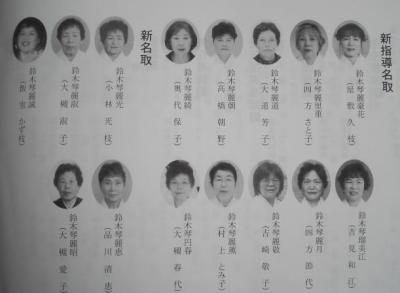 新指導名取
鈴木琴麗豪花
(屋敷久枝)
鈴木琴麗里重
(四方さと子)
鈴木琴麗道
(大道芳子)
鈴木琴麗朝
(高橋朝野)
鈴木琴麗綺
(奥代保子)
新名取
鈴木琴麗光
(小林光枝)
鈴木琴麗淑
(大槻淑子)
鈴木琴麗誠
(飯室かず枝)
鈴木琴瑠美江
(吉見和江)
鈴木琴麗月
(四方節代)
鈴木琴麗敬
(古崎敬子)
鈴木琴麗薫
(村上とみ子)
鈴木琴円春
(大槻春代)
鈴木琴麗恵
(品川清恵)
鈴木琴麗昭
(大槻愛子)